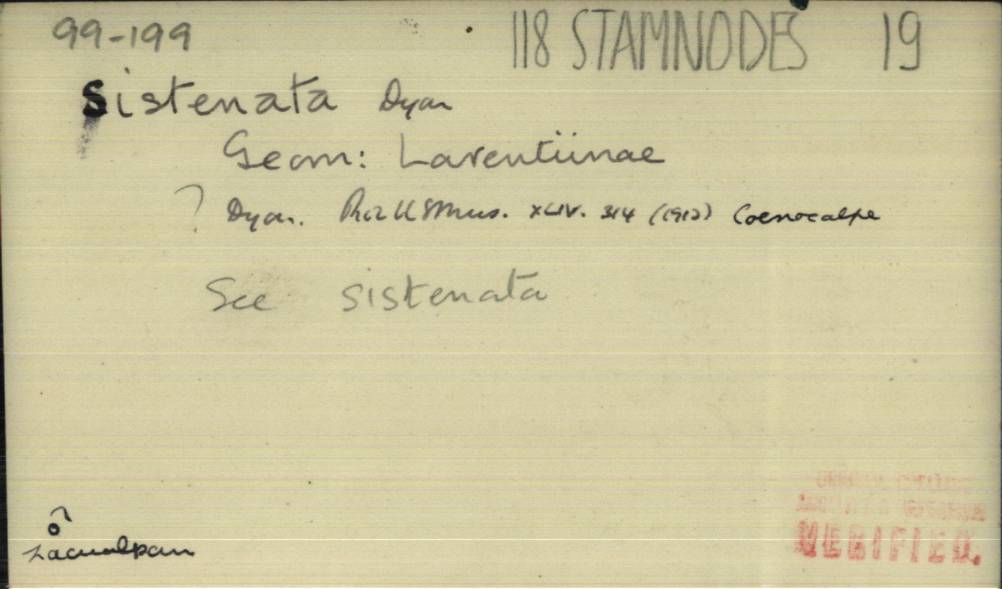 99-199 118 STAMNODES 19
Sistenata Dyar
Geom: Larentiinae
? Dyar. Proc US Mus. XLIV. 314 (1912) Coenocalpe
See sistenata
♂
Zacualpan
VERIFIED.